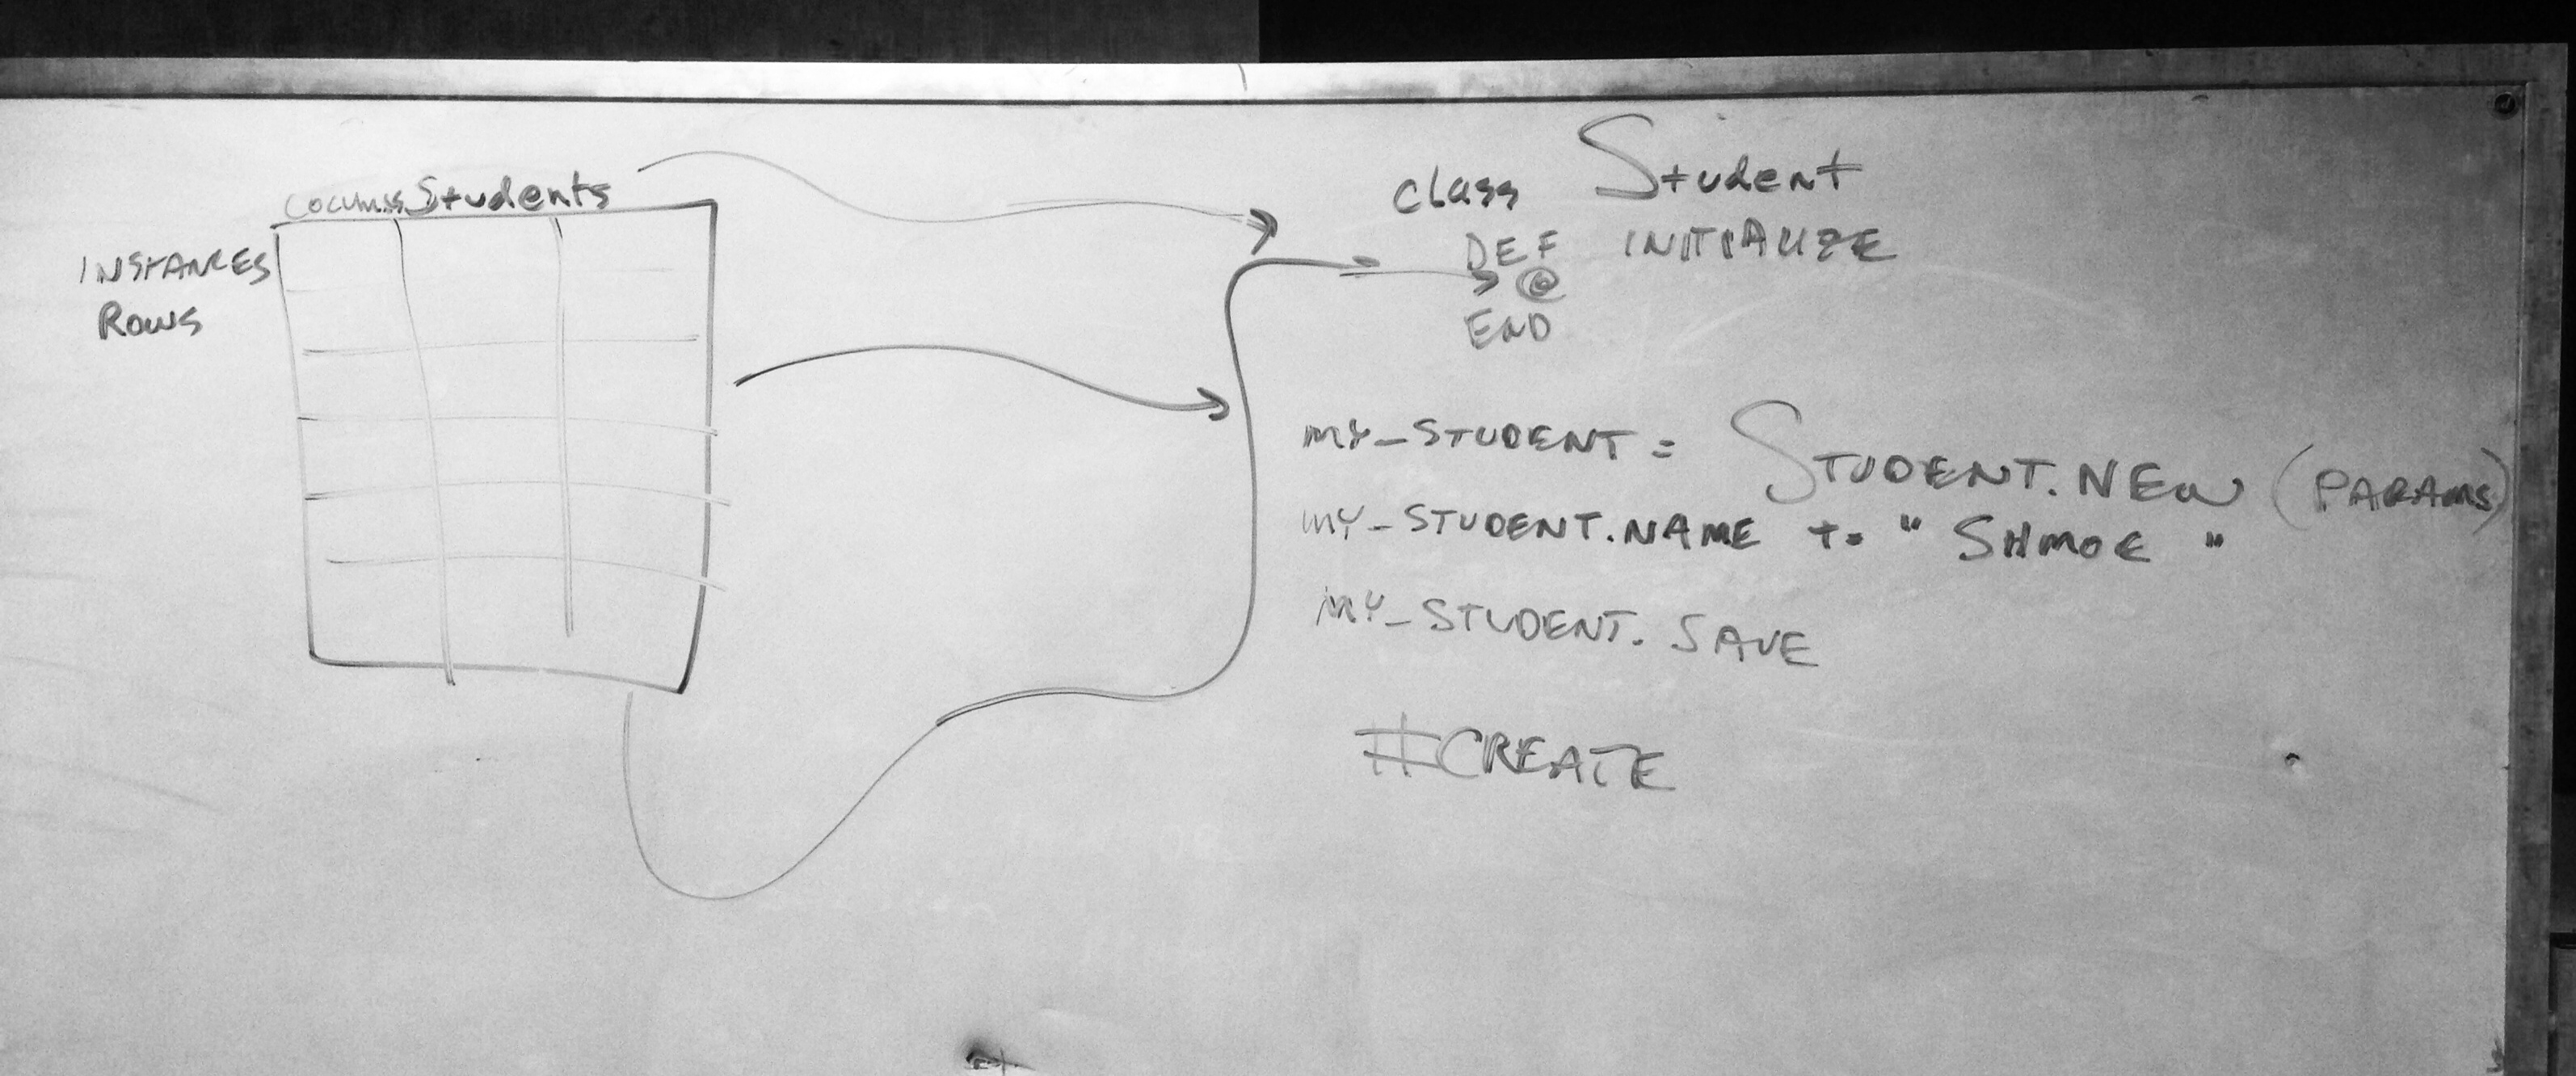 COLUMNS Students
INSTANCES
ROWS
class Student
DEF INITIALIZE
@
END
MY_STUDENT = STUDENT.NEW (PARAMS)
MY_STUDENT.NAME += " SHMOE "
MY_STUDENT.SAVE
#CREATE